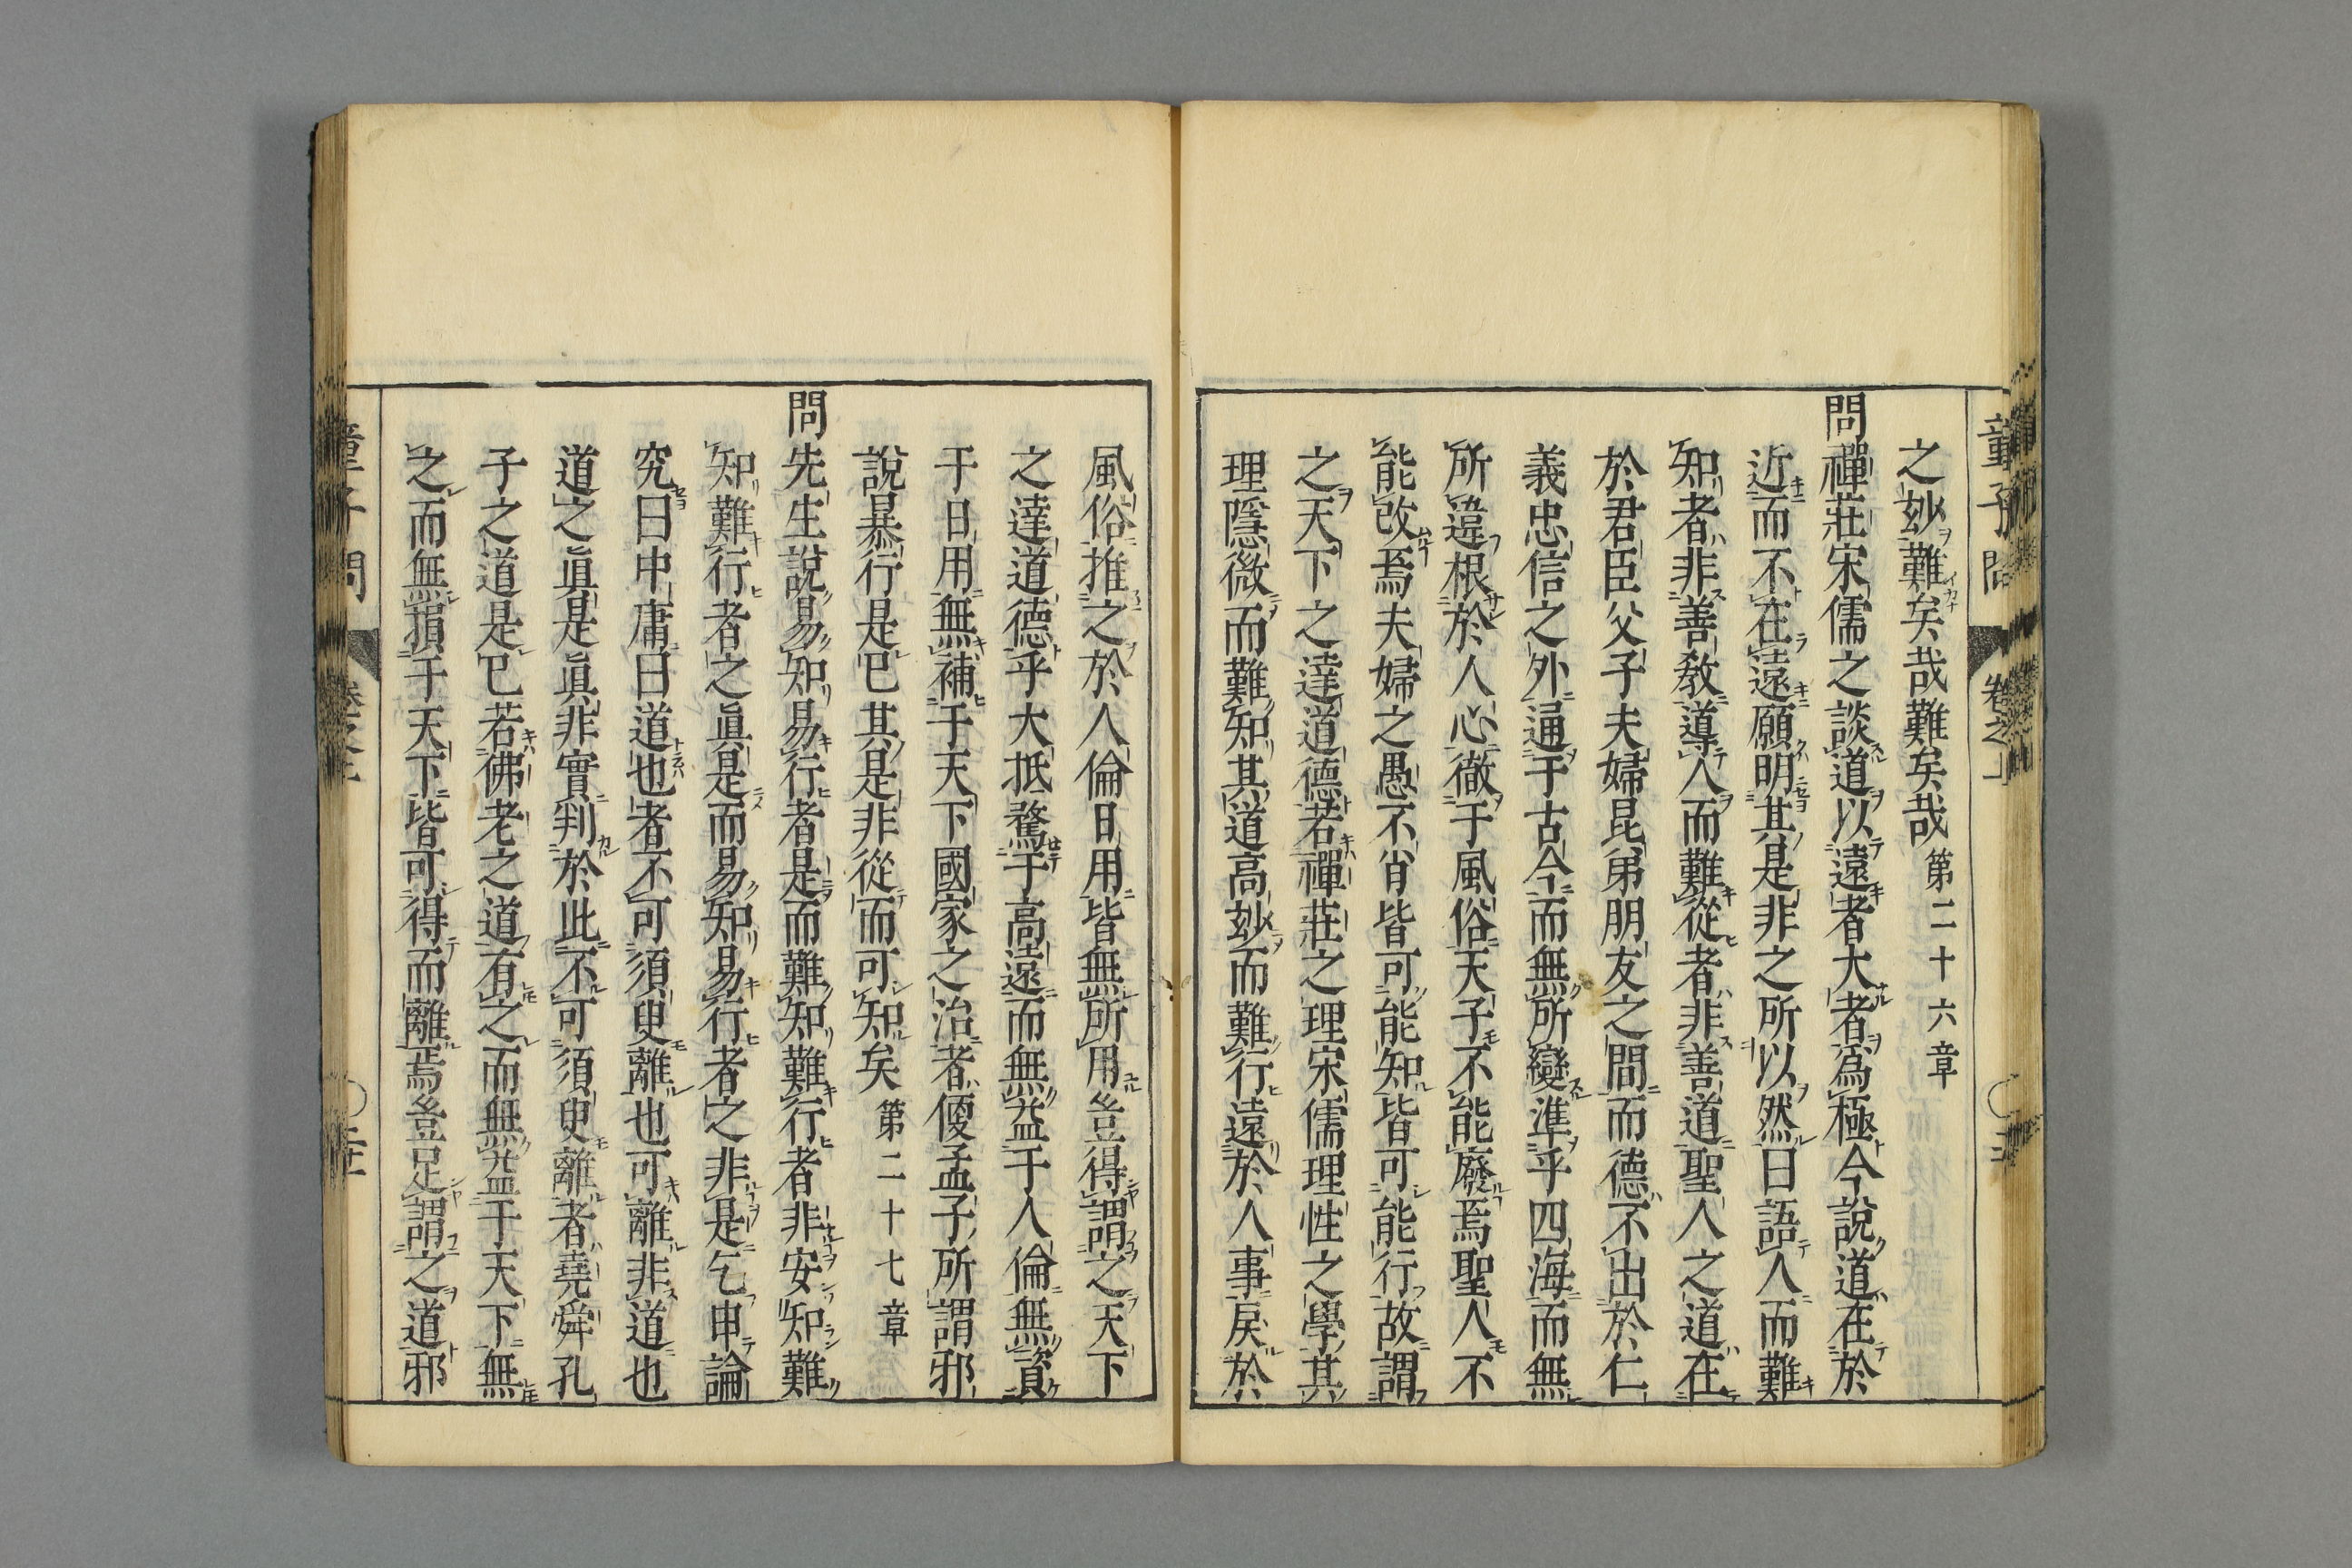 童子問 卷之上
之妙難矣哉難矣哉 第二十六章
問禪莊宋儒之談道以遠者大者為極今說道在於
近而不在遠願明其是非之所以然曰語人而難
知者非善教導人而難從者非善道聖人之道在
於君臣父子夫婦昆弟朋友之間而德不出於仁
義忠信之外通于古今而無所變準乎四海而無
所違根於人心徹于風俗天子不能廢焉聖人不
能改焉夫婦之愚不肖皆可能知皆可能行故謂
之天下之達道德若禪莊之理宋儒理性之學其
理隱微而難知其道高妙而難行遠於人事戾於
風俗推之於人倫日用皆無所用豈得謂之天下
之達道德乎大抵騖于高遠而無益于人倫無資
于日用無補于天下國家之治者便孟子所謂邪
說暴行是已其是非從而可知矣 第二十七章
問先生說易知易行者是而難知難行者非安知難
知難行者之眞是而易知易行者之非是乞申論
究曰中庸曰道也者不可須臾離也可離非道也
道之眞是眞非實判於此不可須臾離者堯舜孔
子之道是已若佛老之道有之而無益于天下無
之而無損于天下皆可得而離焉豈足謂之道邪
童子問